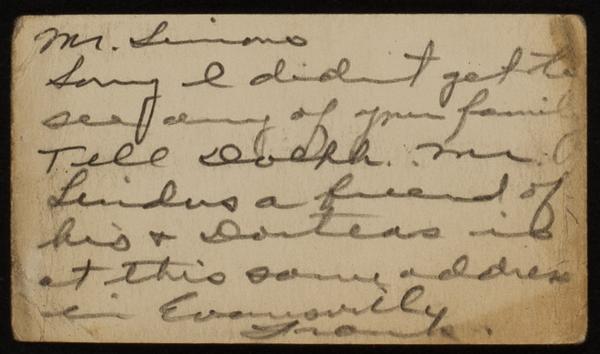 Mr. Simons
Sorry I didn't get to
see any of your family
Tell Dolph. Mr.
Lindus a friend of
his & Dorteas is
at this same address
in Evansville
Frank.